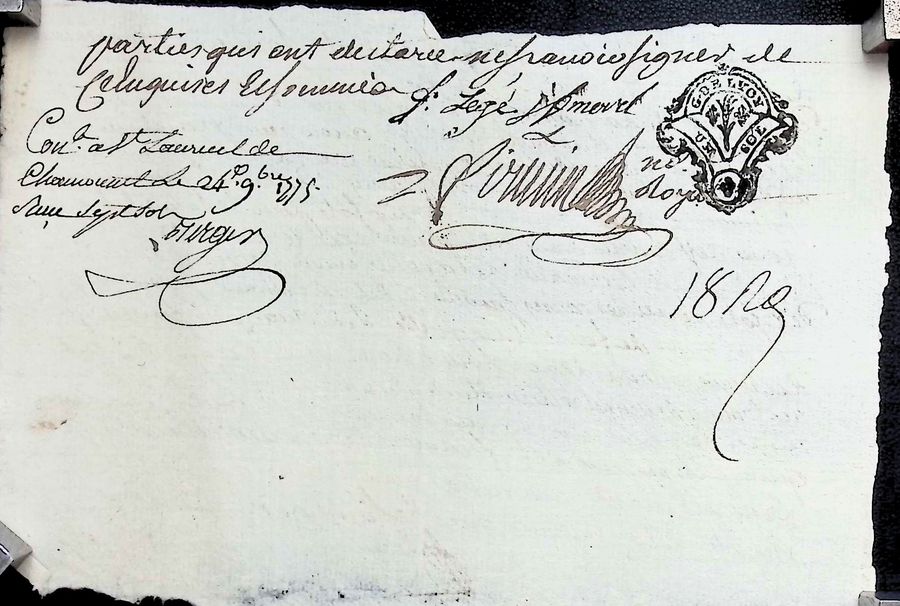 parties qui ont declaré ne scavoir signer de
ce enquises et sommées
f. Legé J. Morel
Con.lé a S.t Laurent de
Chamousset Le 24.e 9.bre 1775
Reçu sept sols
G. DE LYON
UN SOL
18 R.e